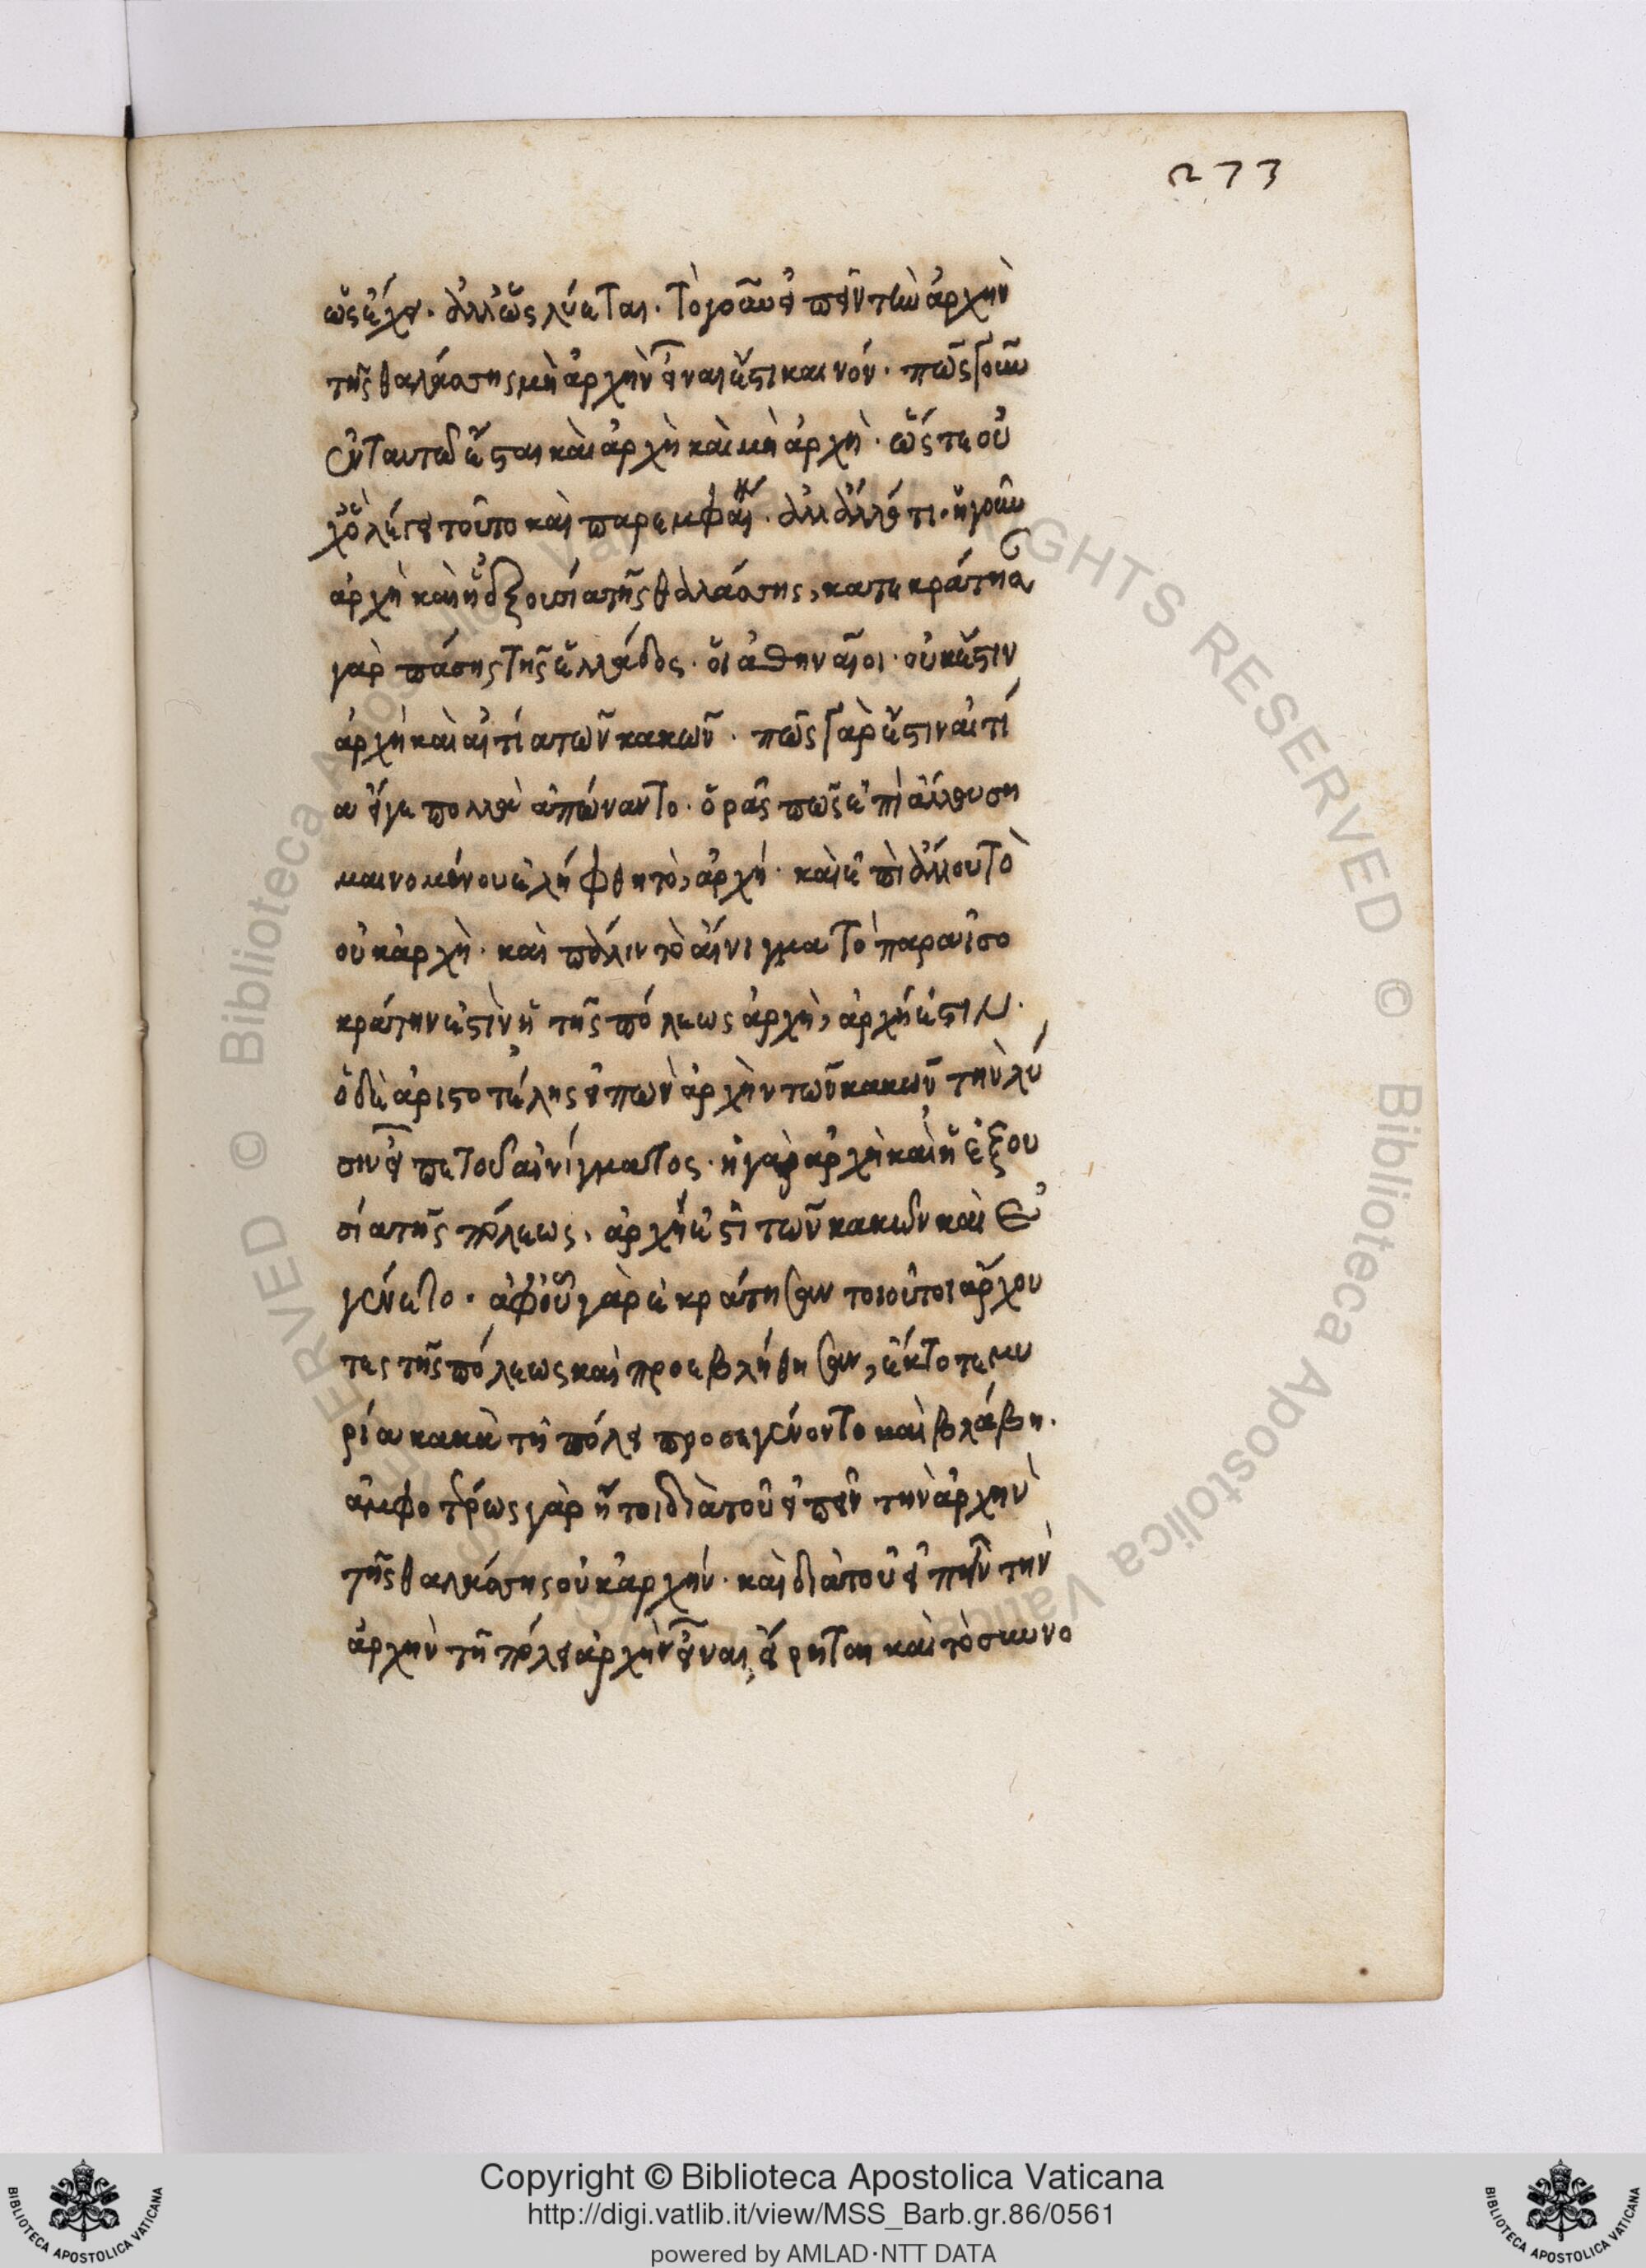 273
ὡς εἶχε. ἀλλ' ὡς λύεται. τὸ γοῦν εἰπεῖν τὴν ἀρχὴν
τῆς θαλάσσης μὴ ἀρχὴν εἶναι ἔστι καινόν. πῶς γοῦν
ἐνταυτῶ ἔσται καὶ ἀρχὴ καὶ μὴ ἀρχὴ. ὥστε οὐ
λέγει τοῦτο καὶ παρεμφαί. ἀλλ' ἄλλό τι. ἤγουν
ἀρχὴ καὶ ἡ ἐξουσία τῆς θαλάσσης, κατεκράτησαν
γὰρ πάσης τῆς ἑλλάδος. οἱ ἀθηναῖοι. οὐκ ἔστιν
ἀρχὴ καὶ αἰτία τῶν κακῶν. πῶς γὰρ ἔστιν αἰτί
α εἴγε πολλὰ ἀπώναντο. ὁρᾷς πῶς ἐπὶ ἄλλου ση
μαινομένου ἐλήφθη τὸ, ἀρχή. καὶ ἐπὶ ἄλλου τὸ
οὐκ ἀρχὴ. καὶ πάλιν τὸ αἴνιγμα τὸ παρ' αἰσο
κράτην ἐστὶν ἡ τῆς πόλεως ἀρχὴ, ἀρχή ἐστιν.
ὁ δὲ ἀριστοτέλης εἰπὼν ἀρχὴν τῶν κακῶν τὴν λύ
σιν εἶπε τοῦ αἰνίγματος. ἡ γὰρ ἀρχὴ καὶ ἡ ἐξου
σία τῆς πόλεως, ἀρχή ἐστι τῶν κακῶν καὶ ἐ
γένετο. ἀφ' οὗ γὰρ ἐκράτησαν τοιοῦτοι ἄρχον
τες τῆς πόλεως καὶ προεβλήθησαν, ἔκτοτε μυ
ρία κακὰ τῇ πόλει προσεγένοντο καὶ βλάβη.
ἀμφοτέρως γὰρ ἤτοι διὰ τοῦ εἰπεῖν τὴν ἀρχὴν
τῆς θαλάσσης οὐκ ἀρχήν. καὶ διὰ τοῦ εἰπεῖν τὴν
ἀρχὴν τῇ πόλει ἀρχὴν εἶναι, εἴρηται καὶ τὸ
Copyright © Biblioteca Apostolica Vaticana
http://digi.vatlib.it/view/MSS_Barb.gr.86/0561
powered by AMLAD·NTT DATA